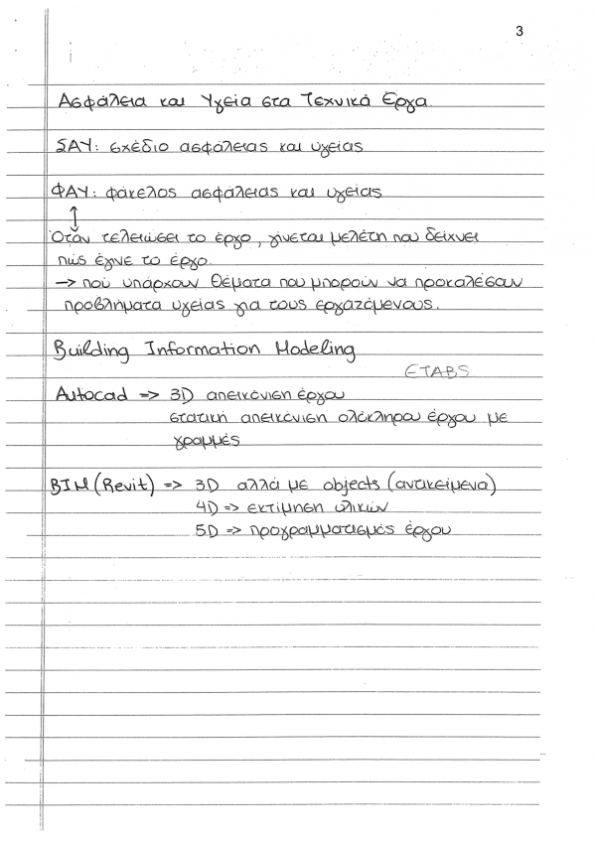 3
Ασφάλεια και Υγεία στα Τεχνικά Έργα.
ΣΑΥ: σχέδιο ασφάλειας και υγείας
ΦΑΥ: φάκελος ασφάλειας και υγείας
↑
Όταν τελειώσει το έργο, γίνεται μελέτη που δείχνει
πώς έγινε το έργο.
→ πού υπάρχουν θέματα που μπορούν να προκαλέσουν
προβλήματα υγείας για τους εργαζόμενους.
Building Information Modeling
ETABS
Autocad => 3D απεικόνιση έργου
στατική απεικόνιση ολόκληρου έργου με
γραμμές
BIM (Revit) => 3D αλλά με objects (αντικείμενα)
4D => εκτίμηση υλικών
5D => προγραμματισμός έργου